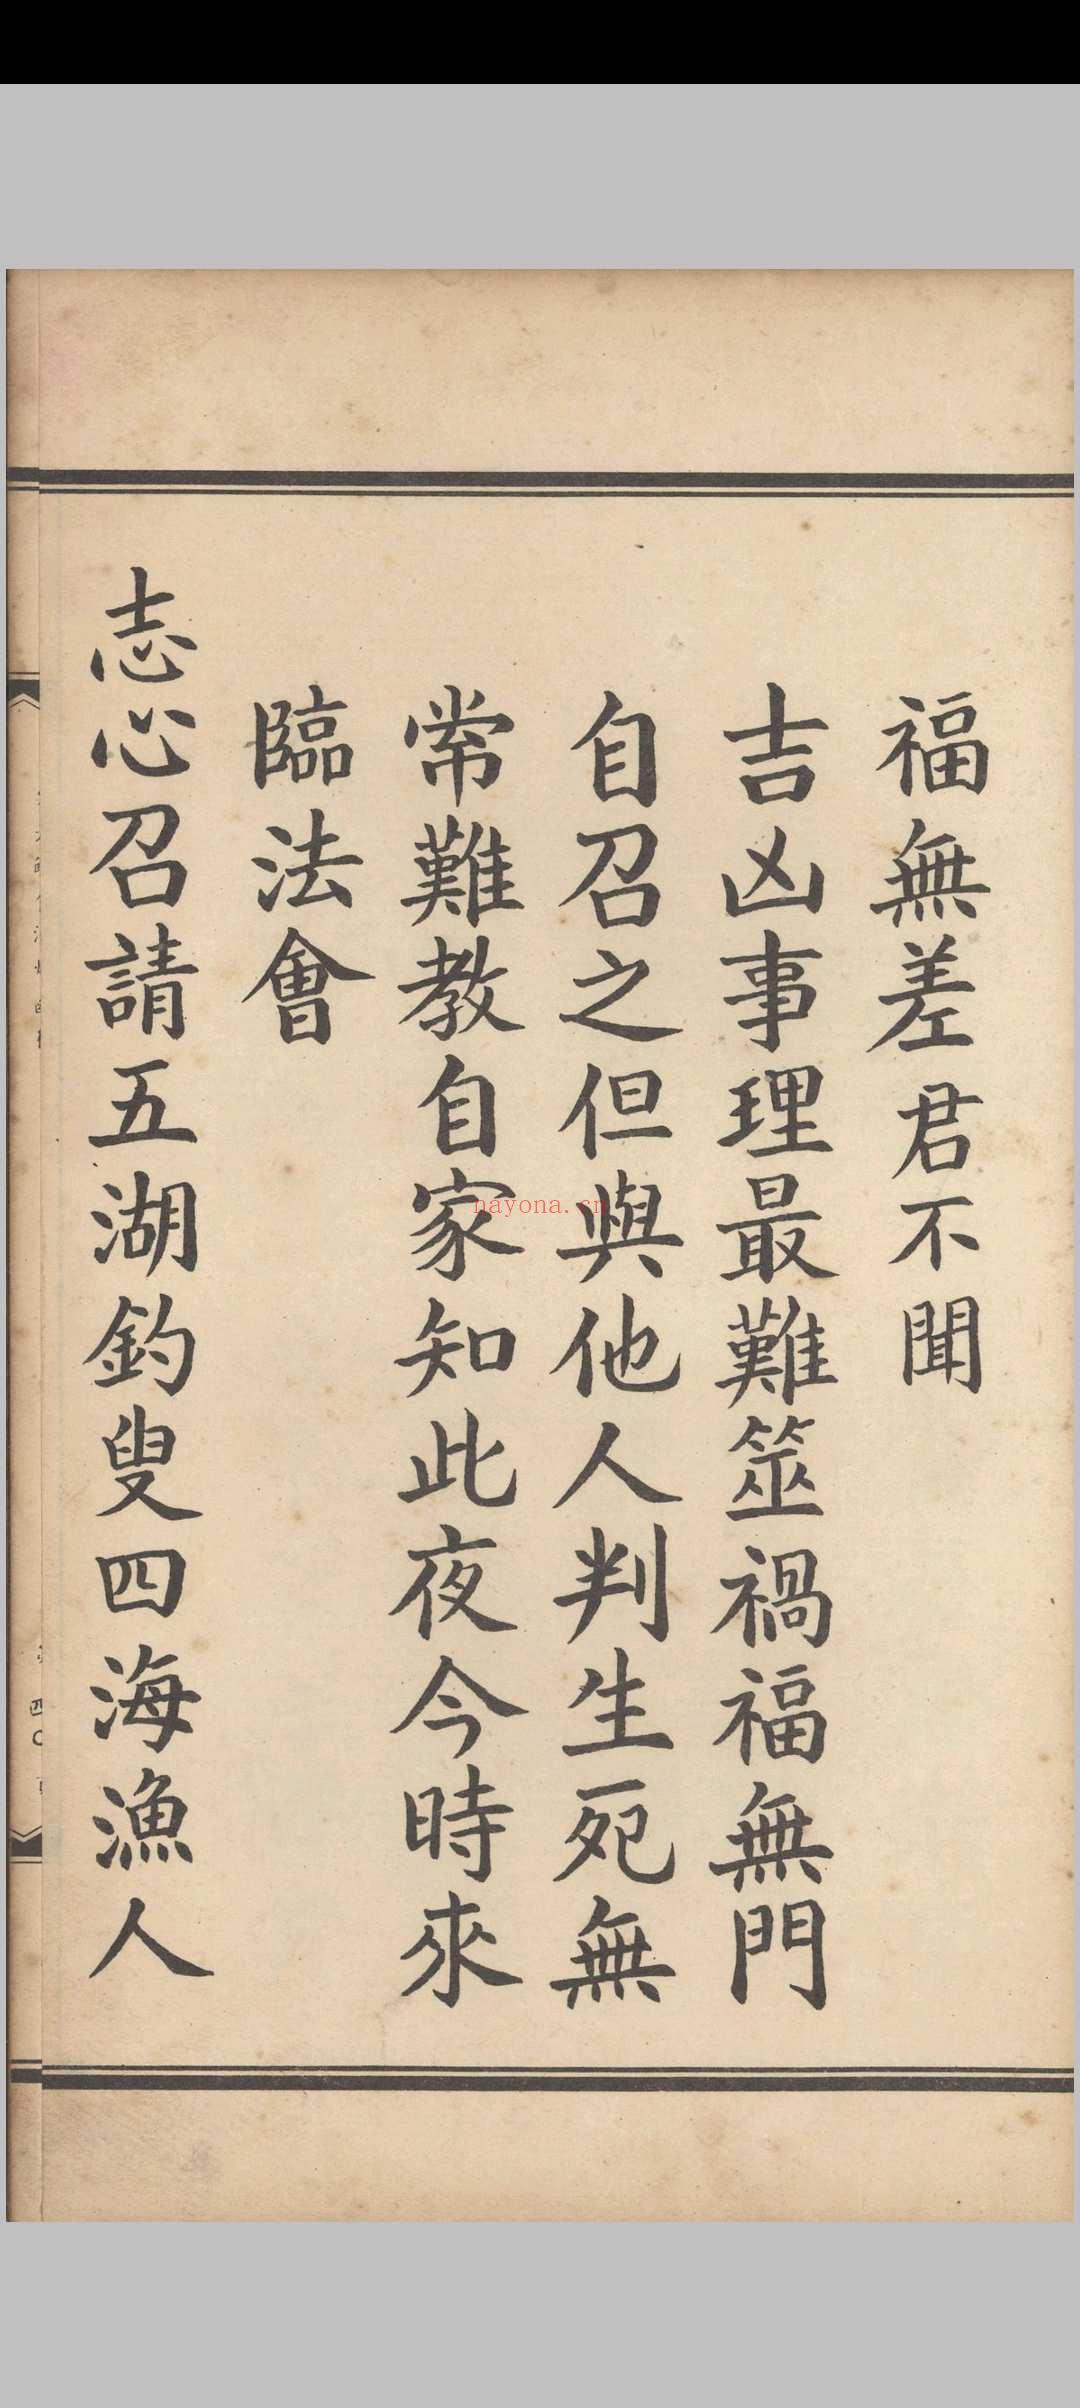 福無差君不聞
吉凶事理最難筮禍福無門
自召之但與他人判生死無
常難教自家知此夜今時來
臨法會
志心召請五湖釣叟四海漁人
nayona.cn
四〇